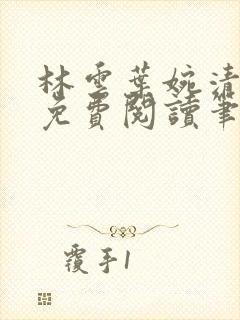 林雲葉婉清
免費閱讀筆
覆手1